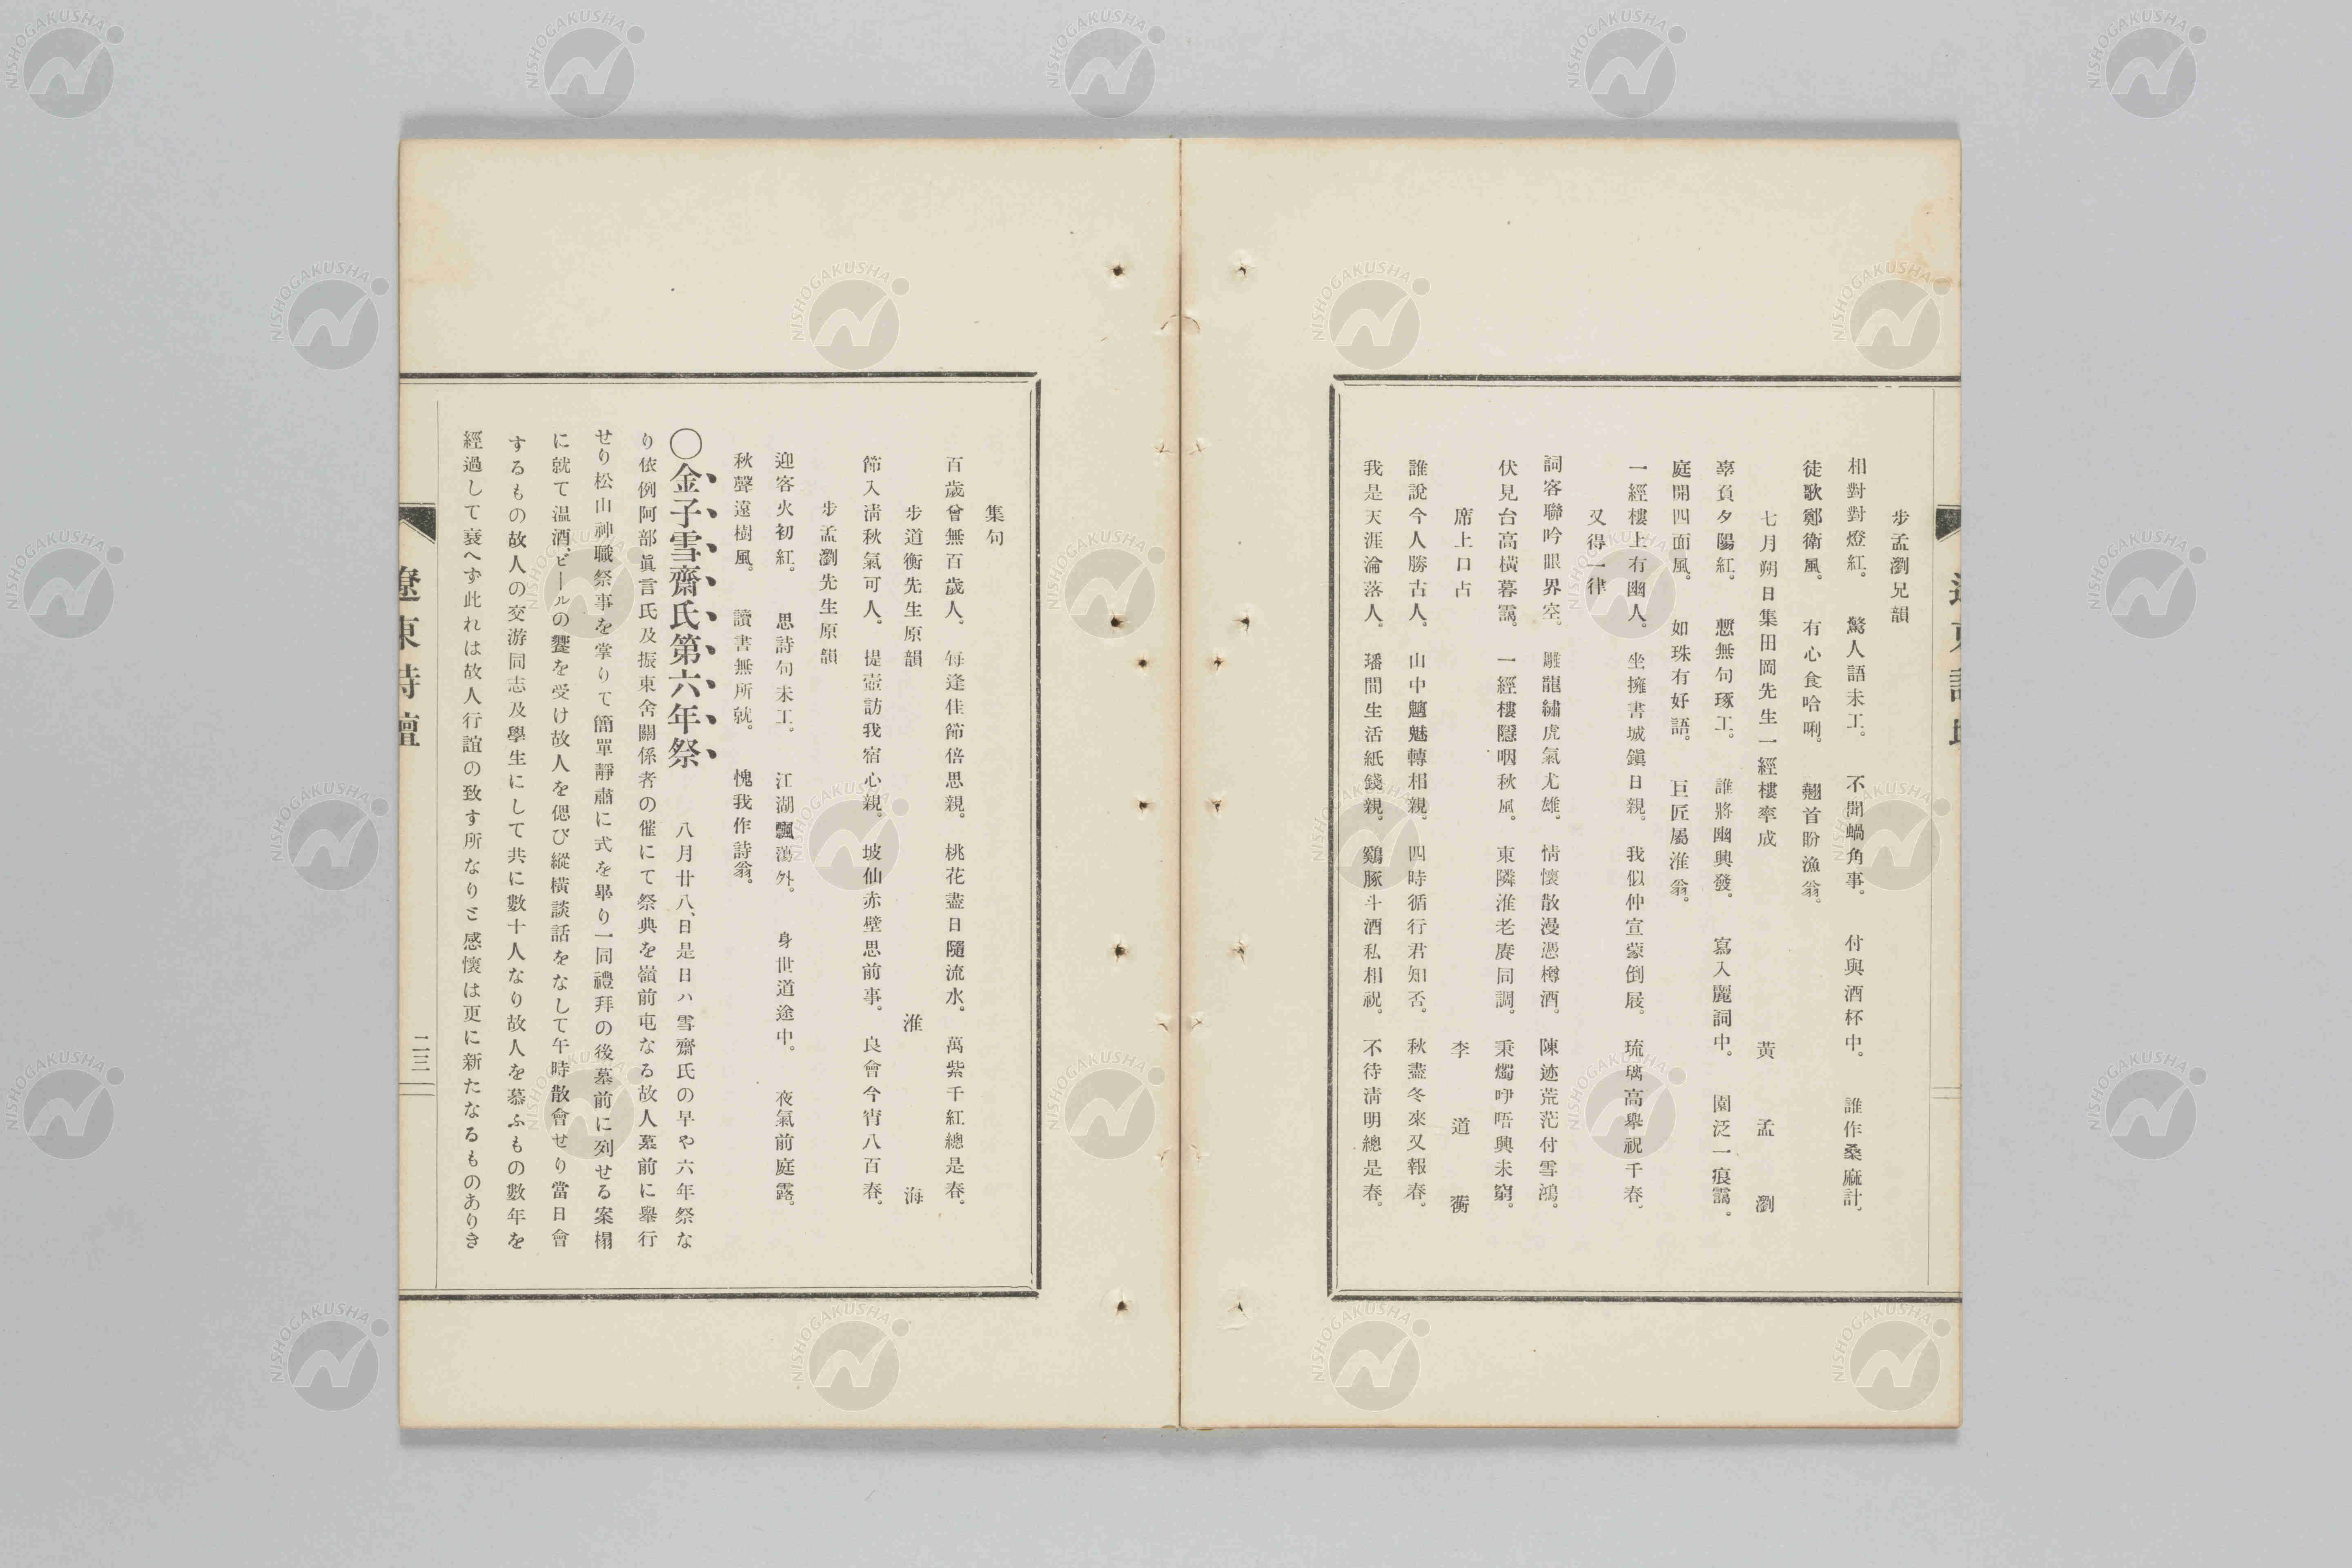 步孟瀏兄韻
相對對燈紅。驚人語未工。不聞蝸角事。付與酒杯中。誰作桑麻計。
徒歌鄭衛風。有心食哈唎。翹首盼漁翁。
七月朔日集田岡先生一經樓率成　黃孟瀏
辜負夕陽紅。慙無句琢工。誰將幽興發。寫入麗詞中。園泛一痕靄。
庭開四面風。如珠有好語。巨匠屬淮翁。
一經樓上有幽人。坐擁書城鎭日親。我似仲宣蒙倒屐。琉璃高舉祝千春。
又得一律
詞客聯吟眼界空。雕龍繡虎氣尤雄。情懷散漫憑樽酒。陳迹荒茫付雪鴻。
伏見台高橫暮靄。一經樓隱咽秋風。東隣淮老賡同調。秉燭咿唔興未窮。
席上口占　李道衡
誰說今人勝古人。山中魑魅轉相親。四時循行君知否。秋盡冬來又報春。
我是天涯淪落人。璠間生活紙錢親。鷄豚斗酒私相祝。不待淸明總是春。
集句
百歲曾無百歲人。每逢佳節倍思親。桃花盡日隨流水。萬紫千紅總是春。
步道衡先生原韻　淮海
節入淸秋氣可人。提壺訪我宿心親。坡仙赤壁思前事。良會今宵八百春。
步孟瀏先生原韻
迎客火初紅。思詩句未工。江湖飄蕩外。身世道途中。夜氣前庭露。
秋聲遠樹風。讀書無所就。愧我作詩翁。
〇金子雪齋氏第六年祭　八月廿八、日是日ハ雪齋氏の早や六年祭な
り依例阿部眞言氏及振東舍關係者の催にて祭典を嶺前屯なる故人墓前に舉行
せり松山神職祭事を掌りて簡單靜肅に式を畢り一同禮拜の後墓前に列せる案榻
に就て溫酒、ビールの饗を受け故人を偲び縱橫談話をなして午時散會せり當日會
するもの故人の交游同志及學生にして共に數十人なり故人を慕ふもの數年を
經過して衰へず此れは故人行誼の致す所なりと感懷は更に新たなるものありき
遼東詩壇
二三